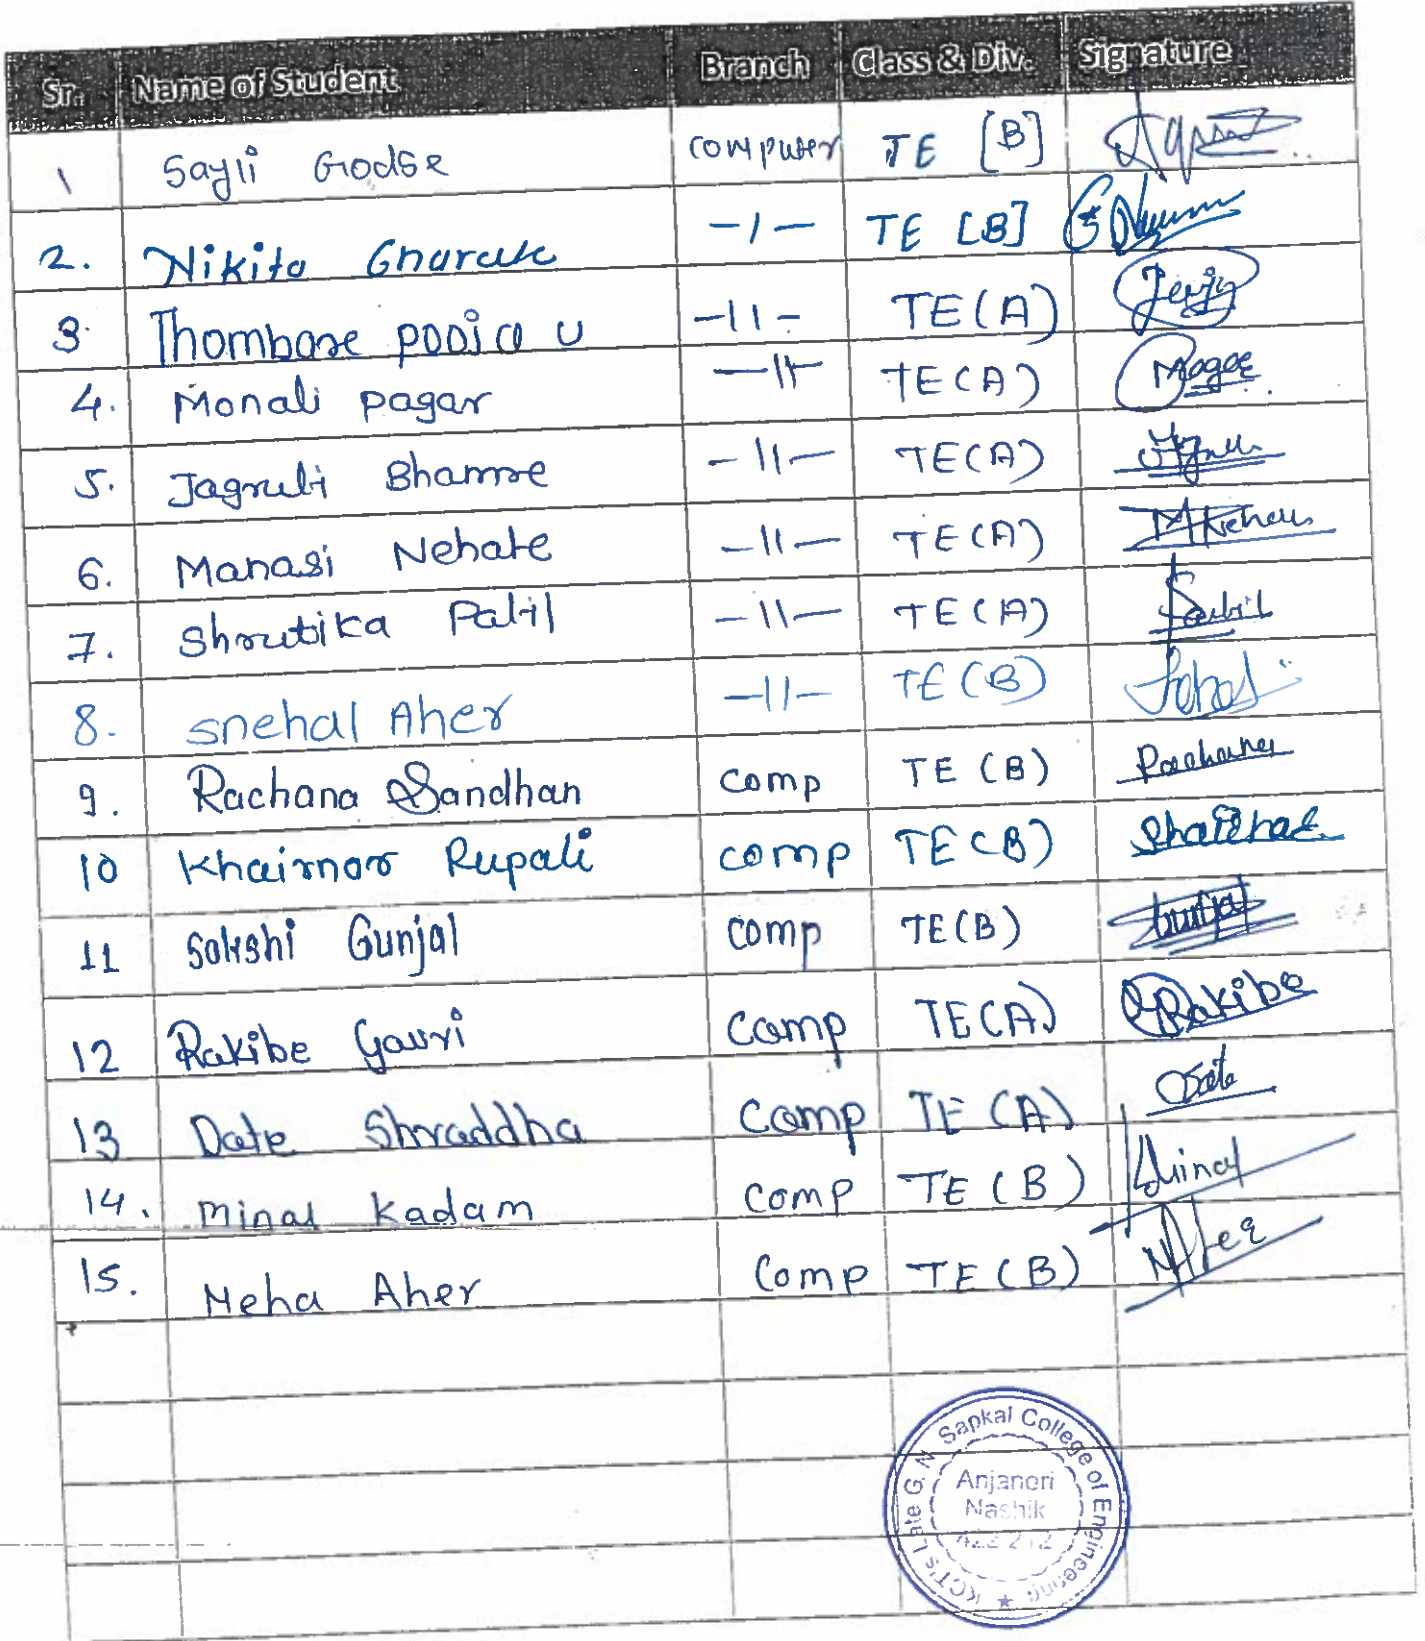 Sr. Name of Student Branch Class & Div. Signature
1 Sayli Godse computer TE [B]
2. Nikita Gharate -/- TE [B]
3. Thombare pooja U -11- TE(A)
4. Monali pagar -11- TE(A)
5. Jagruti Bhamre -11- TE(A)
6. Manasi Nehate -11- TE(A)
7. Shrutika Patil -11- TE(A) Patil
8. snehal Aher -11- TE(B)
9. Rachana Sandhan comp TE (B)
10 Khairnar Rupali comp TE(B)
11 Sakshi Gunjal comp TE(B) Gunjal
12 Rakibe Gauri comp TE(A) Rakibe
13 Date Shraddha comp TE (A) Date
14. Minal Kadam comp TE (B) Minal
15. Neha Aher comp TE (B)
KCT's Late G. N. Sapkal College of Engineering
Anjaneri
Nashik
422 212